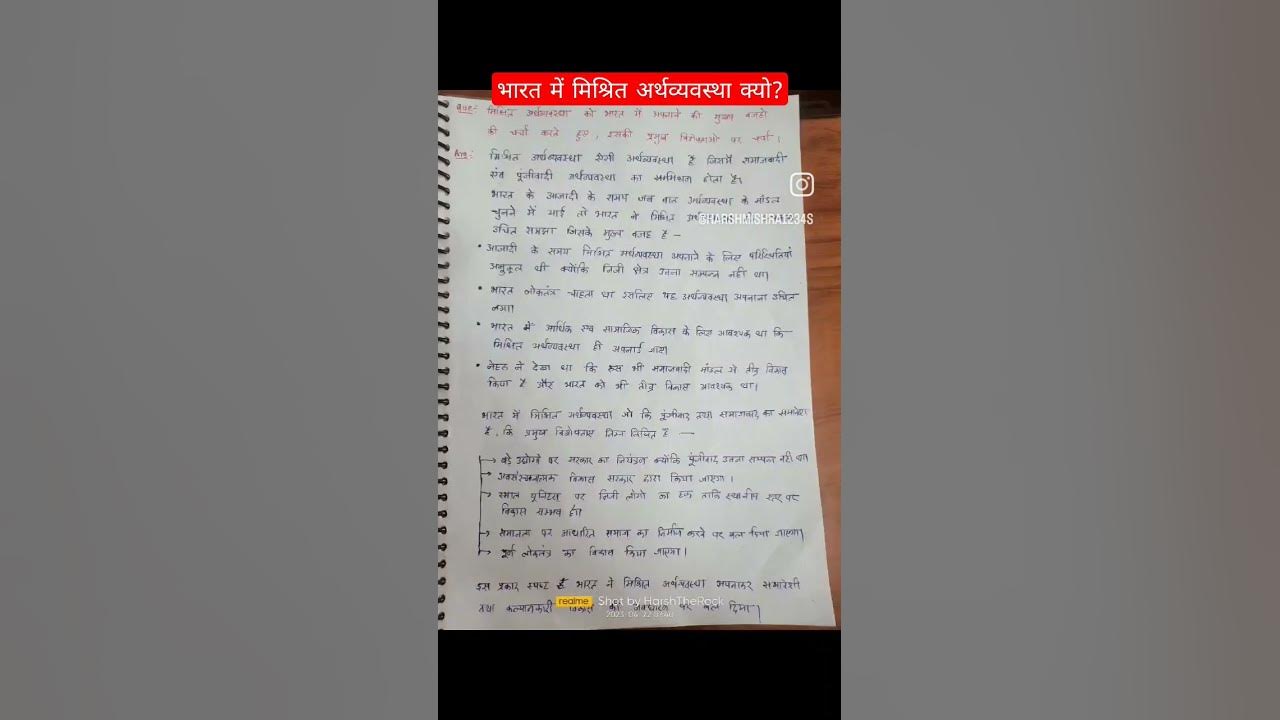 भारत में मिश्रित अर्थव्यवस्था क्यो?
Que:- मिश्रित अर्थव्यवस्था को भारत में अपनाने की मुख्य वजहों
की चर्चा करते हुए, इसकी प्रमुख विशेषताओं पर चर्चा।
Ans:- मिश्रित अर्थव्यवस्था ऐसी अर्थव्यवस्था है जिसमें समाजवादी
एंव पूंजीवादी अर्थव्यवस्था का सम्मिश्रण होता है।
भारत के आजादी के समय जब बात अर्थव्यवस्था के मॉडल
चुनने में आई तो भारत ने मिश्रित
@HARSHMISHRA1234S
उचित समझा जिसके मुख्य वजह है —
• आजादी के समय मिश्रित अर्थव्यवस्था अपनाने के लिए परिस्थितियां
अनुकूल थी क्योंकि निजी क्षेत्र उतना सम्पन्न नहीं था।
• भारत लोकतंत्र चाहता था इसलिए यह अर्थव्यवस्था अपनाना उचित
लगा।
• भारत में आर्थिक एंव सामाजिक विकास के लिए आवश्यक था कि
मिश्रित अर्थव्यवस्था ही अपनाई जाए।
• नेहरू ने देखा था कि रूस भी समाजवादी मॉडल से तीव्र विकास
किया है और भारत को भी तीव्र विकास आवश्यक था।
भारत में मिश्रित अर्थव्यवस्था जो कि पूंजीवाद तथा समाजवाद का समावेश
है, कि प्रमुख विशेषताए निम्न लिखित है —
→ बड़े उद्योगों पर सरकार का नियंत्रण क्योंकि पूंजीवाद उतना सम्पन्न नहीं था।
→ अवसंरचनात्मक विकास सरकार द्वारा किया जाएगा।
→ स्माल यूनिट्स पर निजी लोगों का हक ताकि स्थानीय स्तर पर
विकास सम्भव हो।
→ समानता पर आधारित समाज का निर्माण करने पर बल दिया जाएगा।
→ पूर्ण लोकतंत्र का विकास किया जाएगा।
इस प्रकार स्पष्ट है भारत ने मिश्रित अर्थव्यवस्था अपनाकर समावेशी
तथा कल्याणकारी पर बल दिया।
realme Shot by HarshTheRock
2023/04/22 07:40